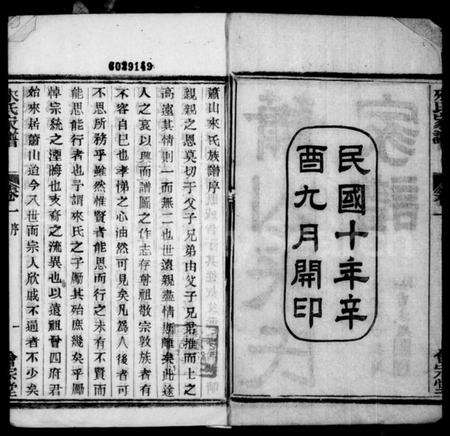 6029149
民國十年辛
酉九月開印
蕭山來氏族譜序
親親之恩莫切于父子兄弟由父子兄弟推而上之
高遠其情則一而無二也世遠親盡情斯離矣此達
人之哀以興而譜圖之作志存尊祖敬宗敦族者有
不容自已也孝悌之心油然可見矣凡為人後者可
不思所務乎雖然惟賢者能思而行之未有不賢而
能思能行者也予謂來氏之子屬其殆庶幾矣乎屬
悼宗統之湮晦也支裔之流異也以遠祖晉四府君
始來居蕭山迨今八世而宗人欣戚不通者不少矣
來氏家譜
卷一
序
一
會宗堂